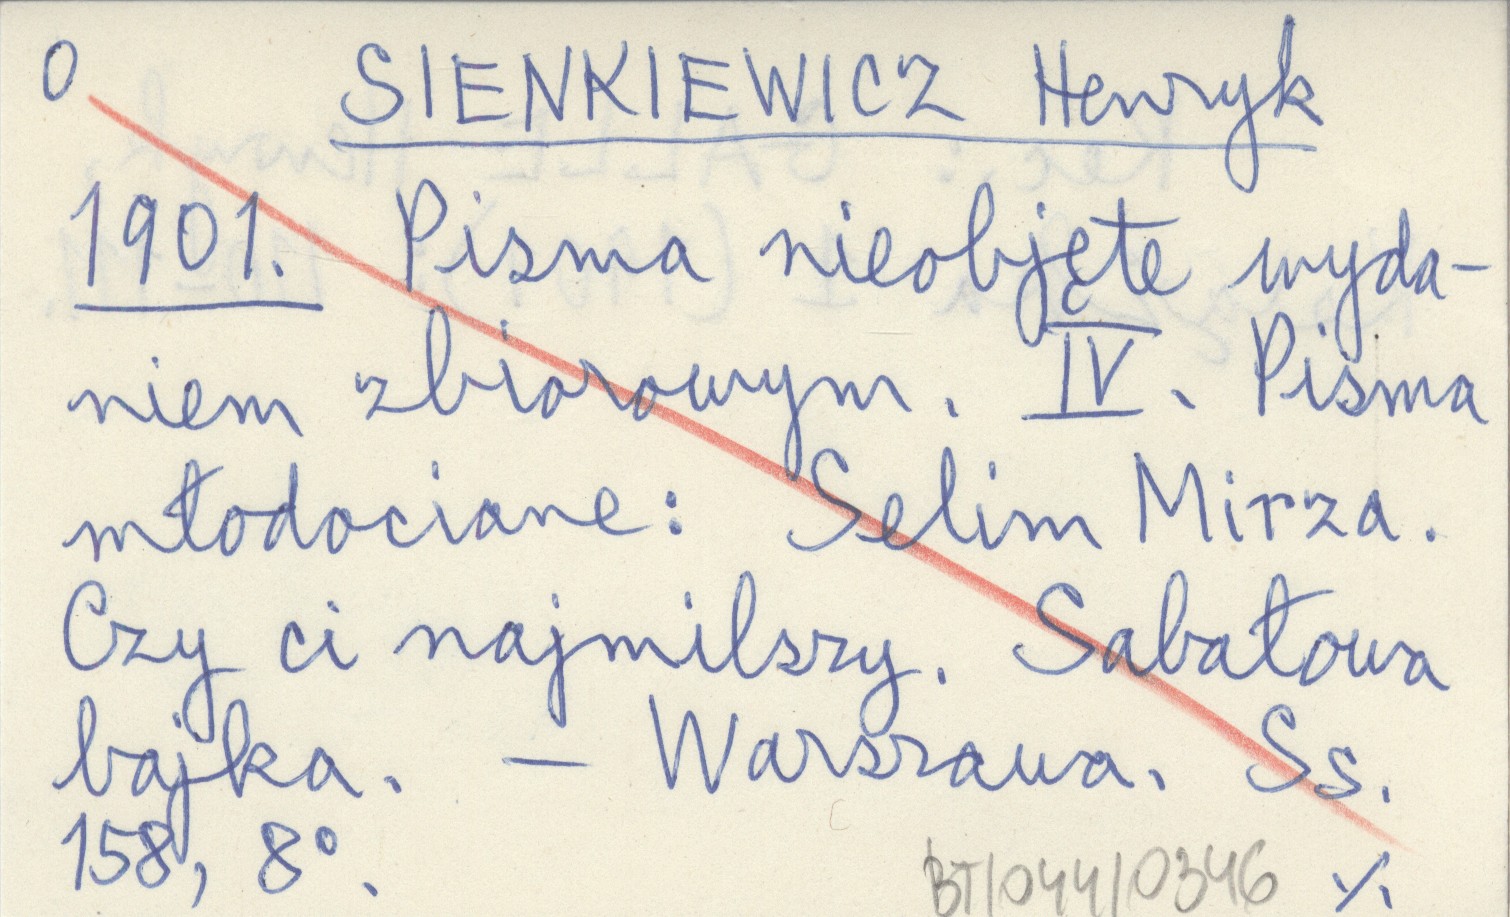 0 SIENKIEWICZ Henryk
1901. Pisma nieobjęte wyda-
niem zbiorowym. IV. Pisma
młodociane: Selim Mirza.
Czy ci najmilszy. Sabałowa
bajka. — Warszawa. Ss.
158, 8°.
BT/044/0346 ./.